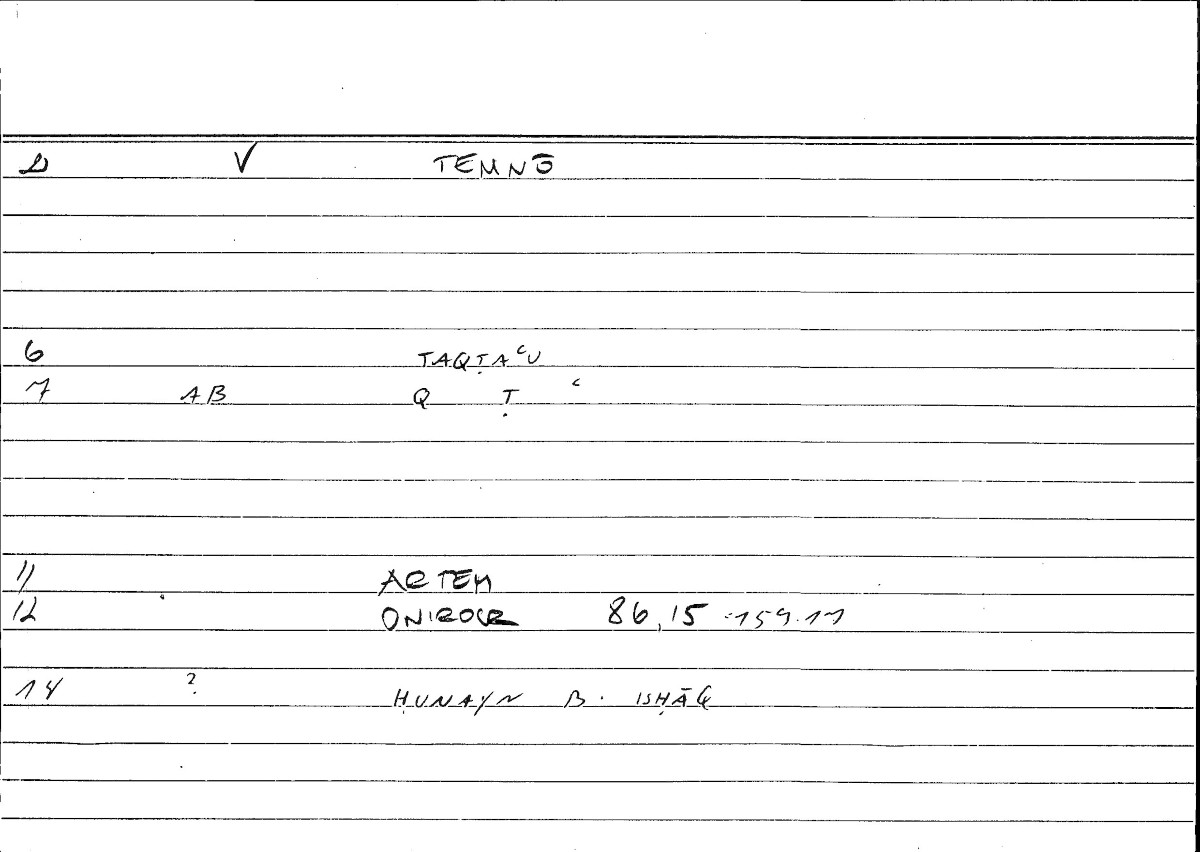 2 V TEMNŌ
6 TAQṬAʿU
7 AB Q Ṭ ʿ
11 ARTEM
12 ONIROCR 86,15 159.17
14 ? ḤUNAYN B. ISḤĀQ